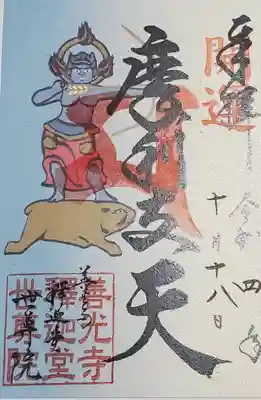 開運
四
十月十八日
摩利支天
善光寺
釋迦堂
世尊院
善光寺
釋迦堂
世尊院